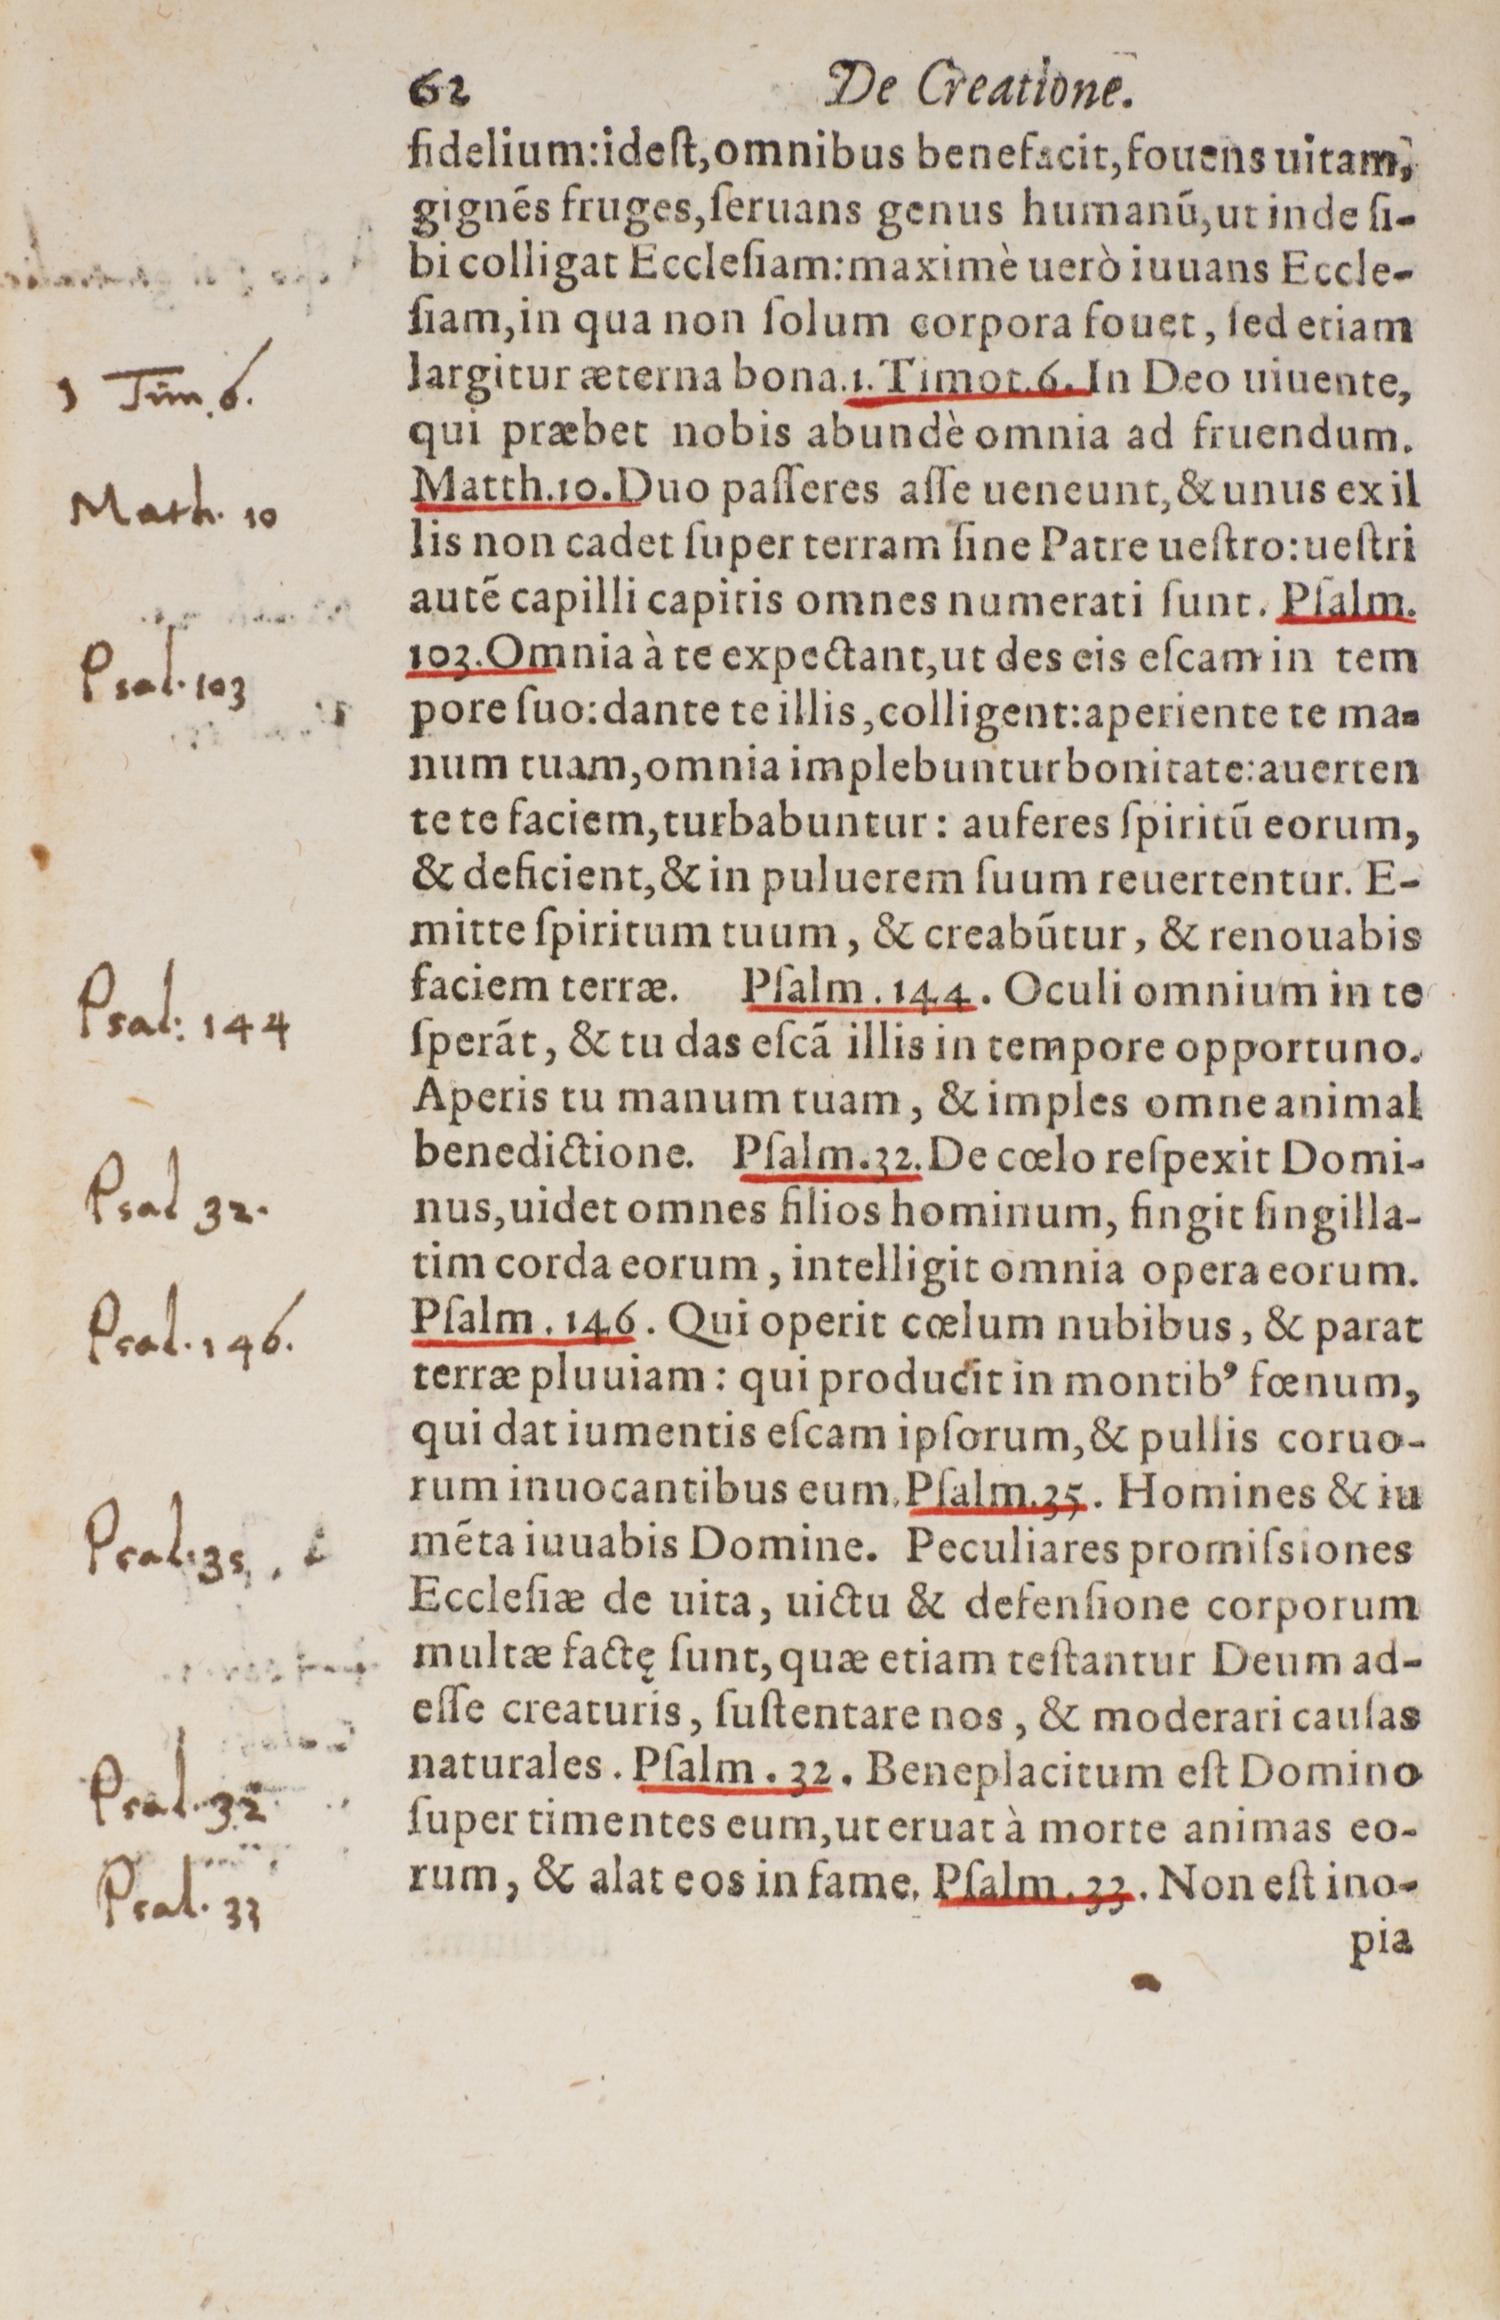 62 De Creatione.
fidelium:idest,omnibus benefacit,fouens uitam,
gignẽs fruges,ſeruans genus humanũ,ut inde ſi-
bi colligat Eccleſiam:maximè uerò iuuans Eccle-
ſiam,in qua non ſolum corpora fouet, ſed etiam
1 Tim. 6.
largitur æterna bona.1.Timot.6. In Deo uiuente,
qui præbet nobis abundè omnia ad fruendum.
Math. 10
Matth.10.Duo paſſeres aſſe ueneunt,& unus ex il
lis non cadet ſuper terram ſine Patre ueſtro:ueſtri
autẽ capilli capitis omnes numerati ſunt. Pſalm.
Psal. 103
103.Omnia à te expectant,ut des eis eſcam in tem
pore ſuo:dante te illis,colligent:aperiente te ma-
num tuam,omnia implebuntur bonitate:auerten
te te faciem,turbabuntur: auferes ſpiritũ eorum,
& deficient,& in puluerem ſuum reuertentur. E-
mitte ſpiritum tuum, & creabũtur, & renouabis
Psal: 144
faciem terræ. Pſalm. 144. Oculi omnium in te
ſperãt, & tu das eſcã illis in tempore opportuno.
Aperis tu manum tuam, & imples omne animal
Psal 32.
benedictione. Pſalm.32. De cœlo reſpexit Domi-
nus,uidet omnes filios hominum, fingit ſingilla-
tim corda eorum, intelligit omnia opera eorum.
Psal. 146.
Pſalm. 146. Qui operit cœlum nubibus, & parat
terræ pluuiam: qui producit in montibꝰ fœnum,
qui dat iumentis eſcam ipſorum,& pullis coruo-
Psal: 35
rum inuocantibus eum.Pſalm.35. Homines & iu
mẽta iuuabis Domine. Peculiares promiſsiones
Eccleſiæ de uita, uictu & defenſione corporum
multæ factę ſunt,quæ etiam teſtantur Deum ad-
eſſe creaturis, ſuſtentare nos, & moderari cauſas
Psal. 32
naturales. Pſalm. 32. Beneplacitum eſt Domino
ſuper timentes eum,ut eruat à morte animas eo-
Psal. 33
rum, & alat eos in fame. Pſalm. 33. Non eſt ino-
pia